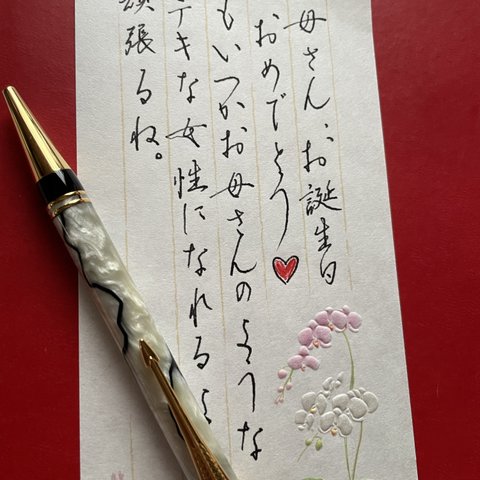 母さん、お誕生日
おめでとう
もいつかお母さんのような
テキな女性になれるよ
張るね。